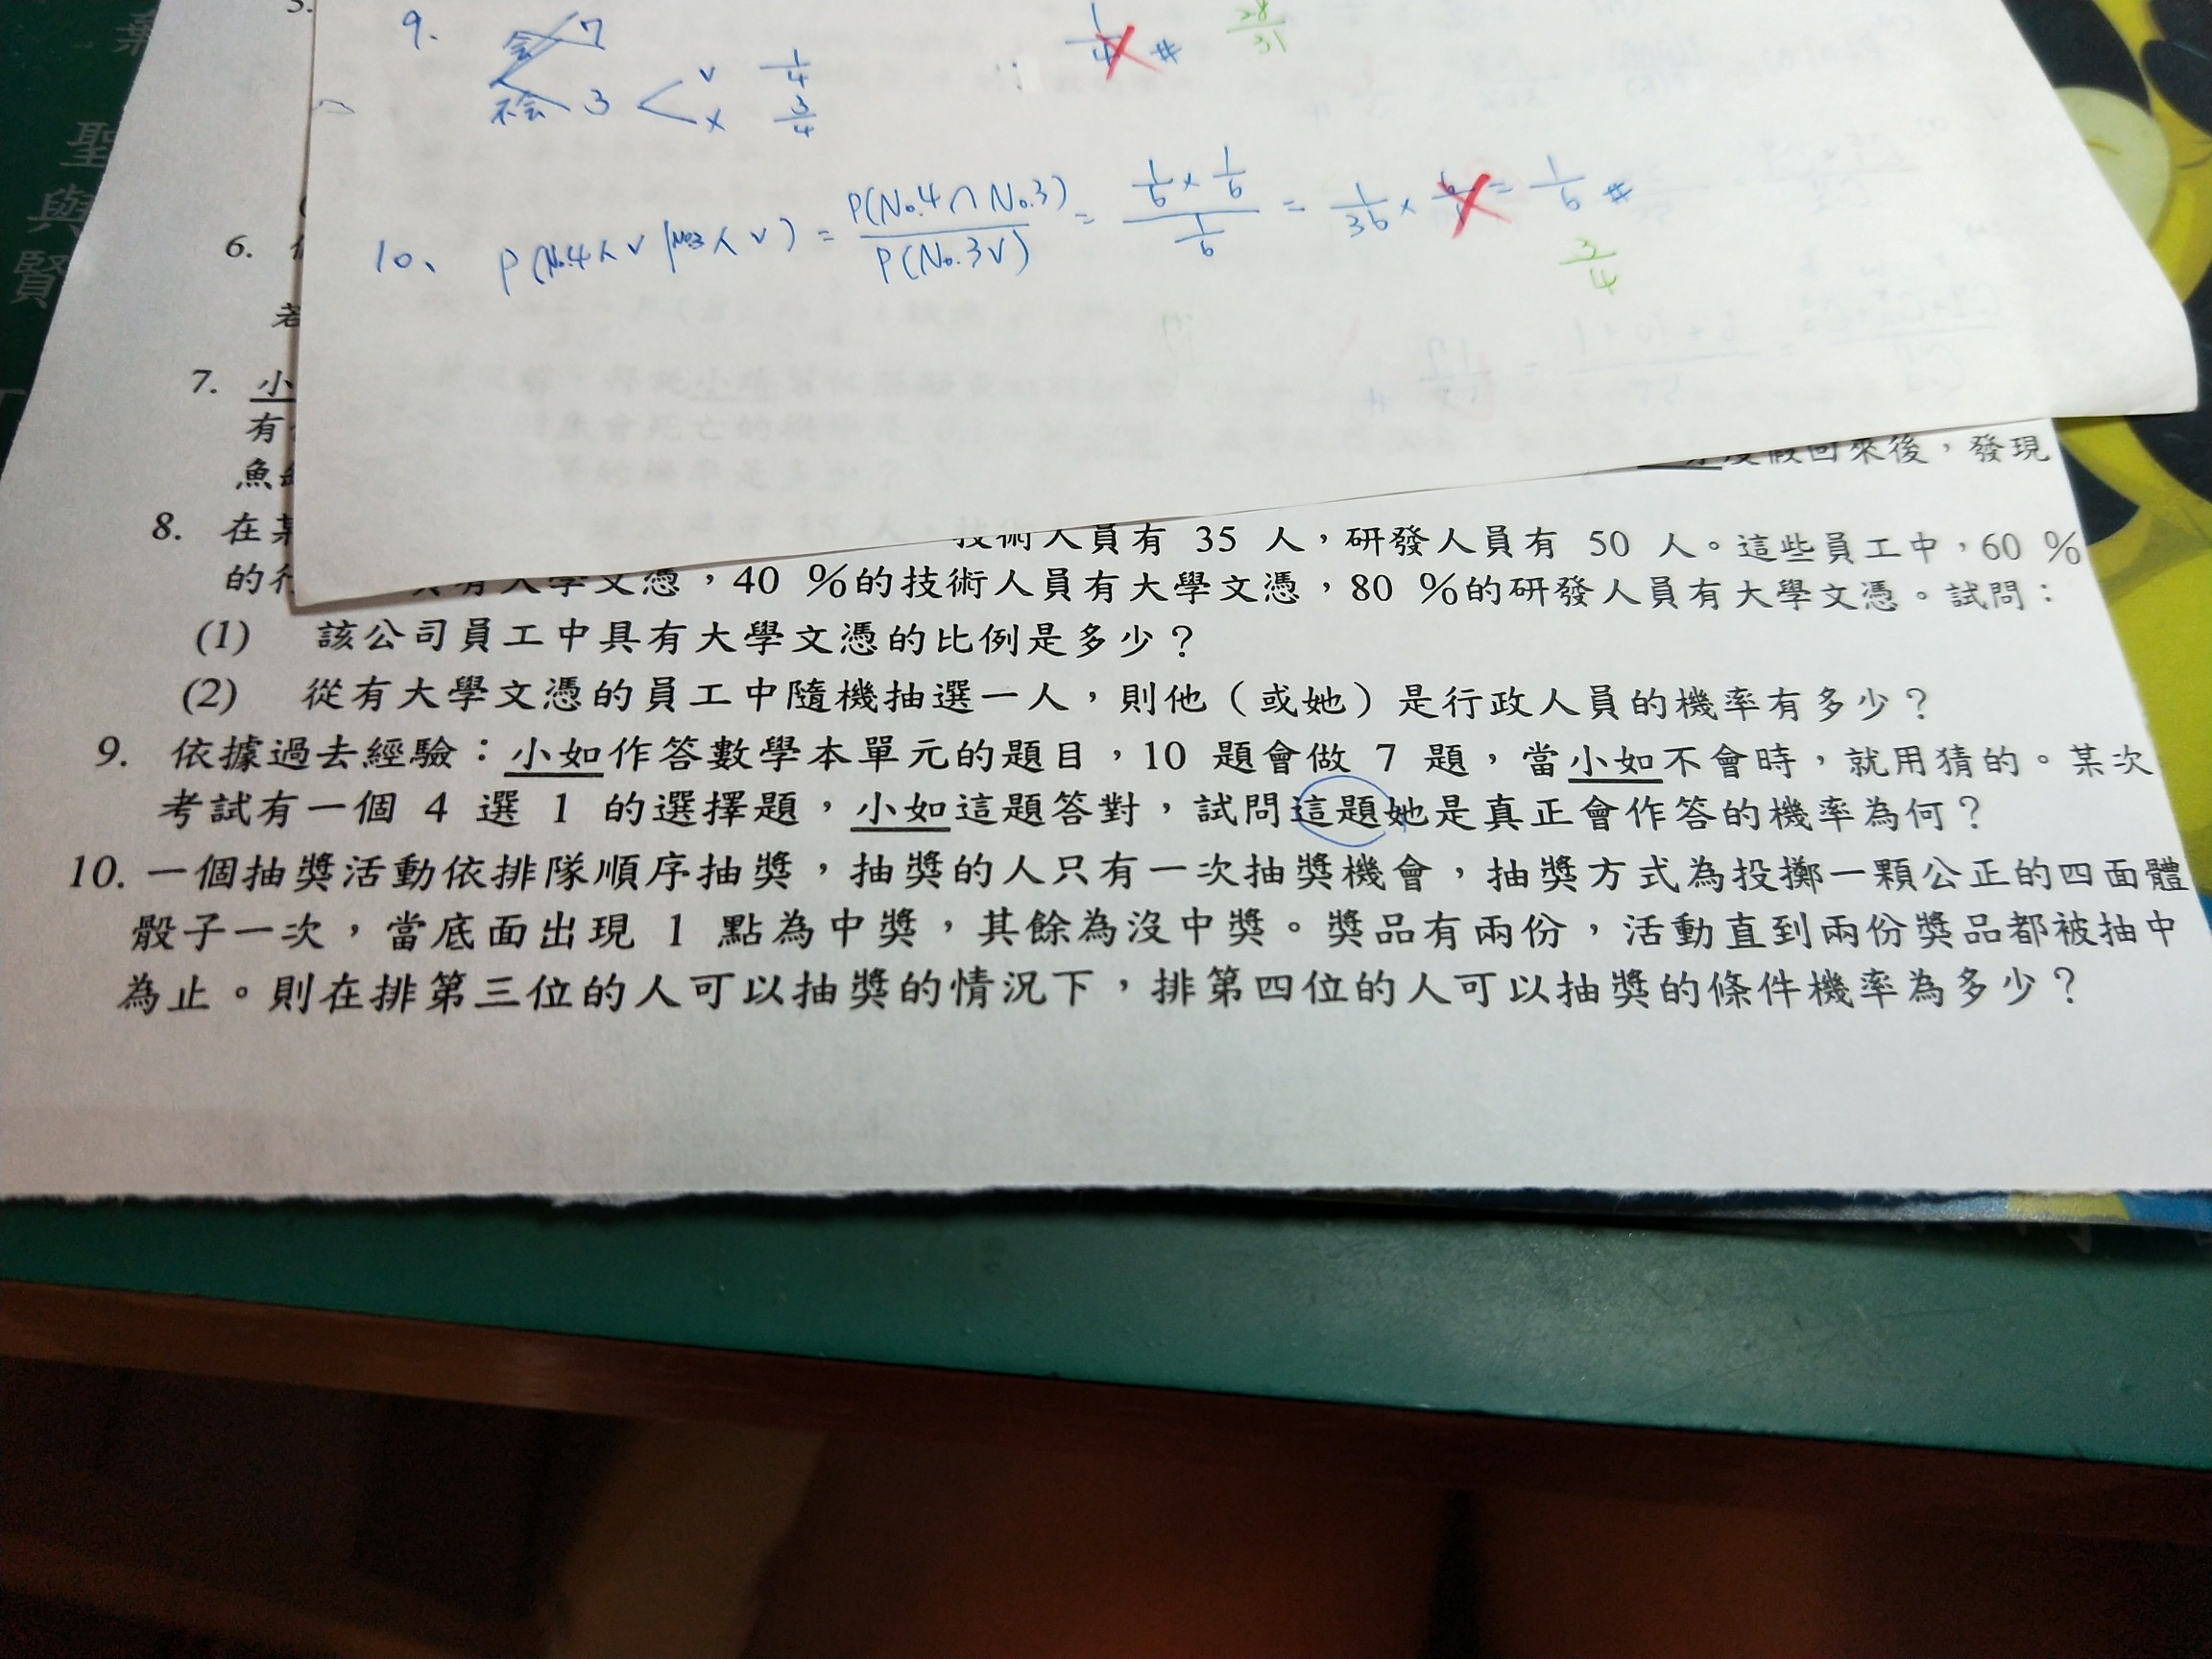 9. 会 7
不会 3 < v 1/4
x 3/4
1/4 # 28/31
10、 P(No.4人v|No.3人v) = P(No.4∩No.3)/P(No.3v) = (1/6 × 1/6)/(1/6) = 1/36 × 6/1 = 1/6 #
3/4
聖
與
賢
5.
6.
若
7. 小
有
魚
度假回來後,發現
8. 在某
技術人員有 35 人,研發人員有 50 人。這些員工中,60 %
的行
具有大學文憑,40 %的技術人員有大學文憑,80 %的研發人員有大學文憑。試問:
(1) 該公司員工中具有大學文憑的比例是多少?
(2) 從有大學文憑的員工中隨機抽選一人,則他(或她)是行政人員的機率有多少?
9. 依據過去經驗:小如作答數學本單元的題目,10 題會做 7 題,當小如不會時,就用猜的。某次
考試有一個 4 選 1 的選擇題,小如這題答對,試問這題她是真正會作答的機率為何?
10. 一個抽獎活動依排隊順序抽獎,抽獎的人只有一次抽獎機會,抽獎方式為投擲一顆公正的四面體
骰子一次,當底面出現 1 點為中獎,其餘為沒中獎。獎品有兩份,活動直到兩份獎品都被抽中
為止。則在排第三位的人可以抽獎的情況下,排第四位的人可以抽獎的條件機率為多少?